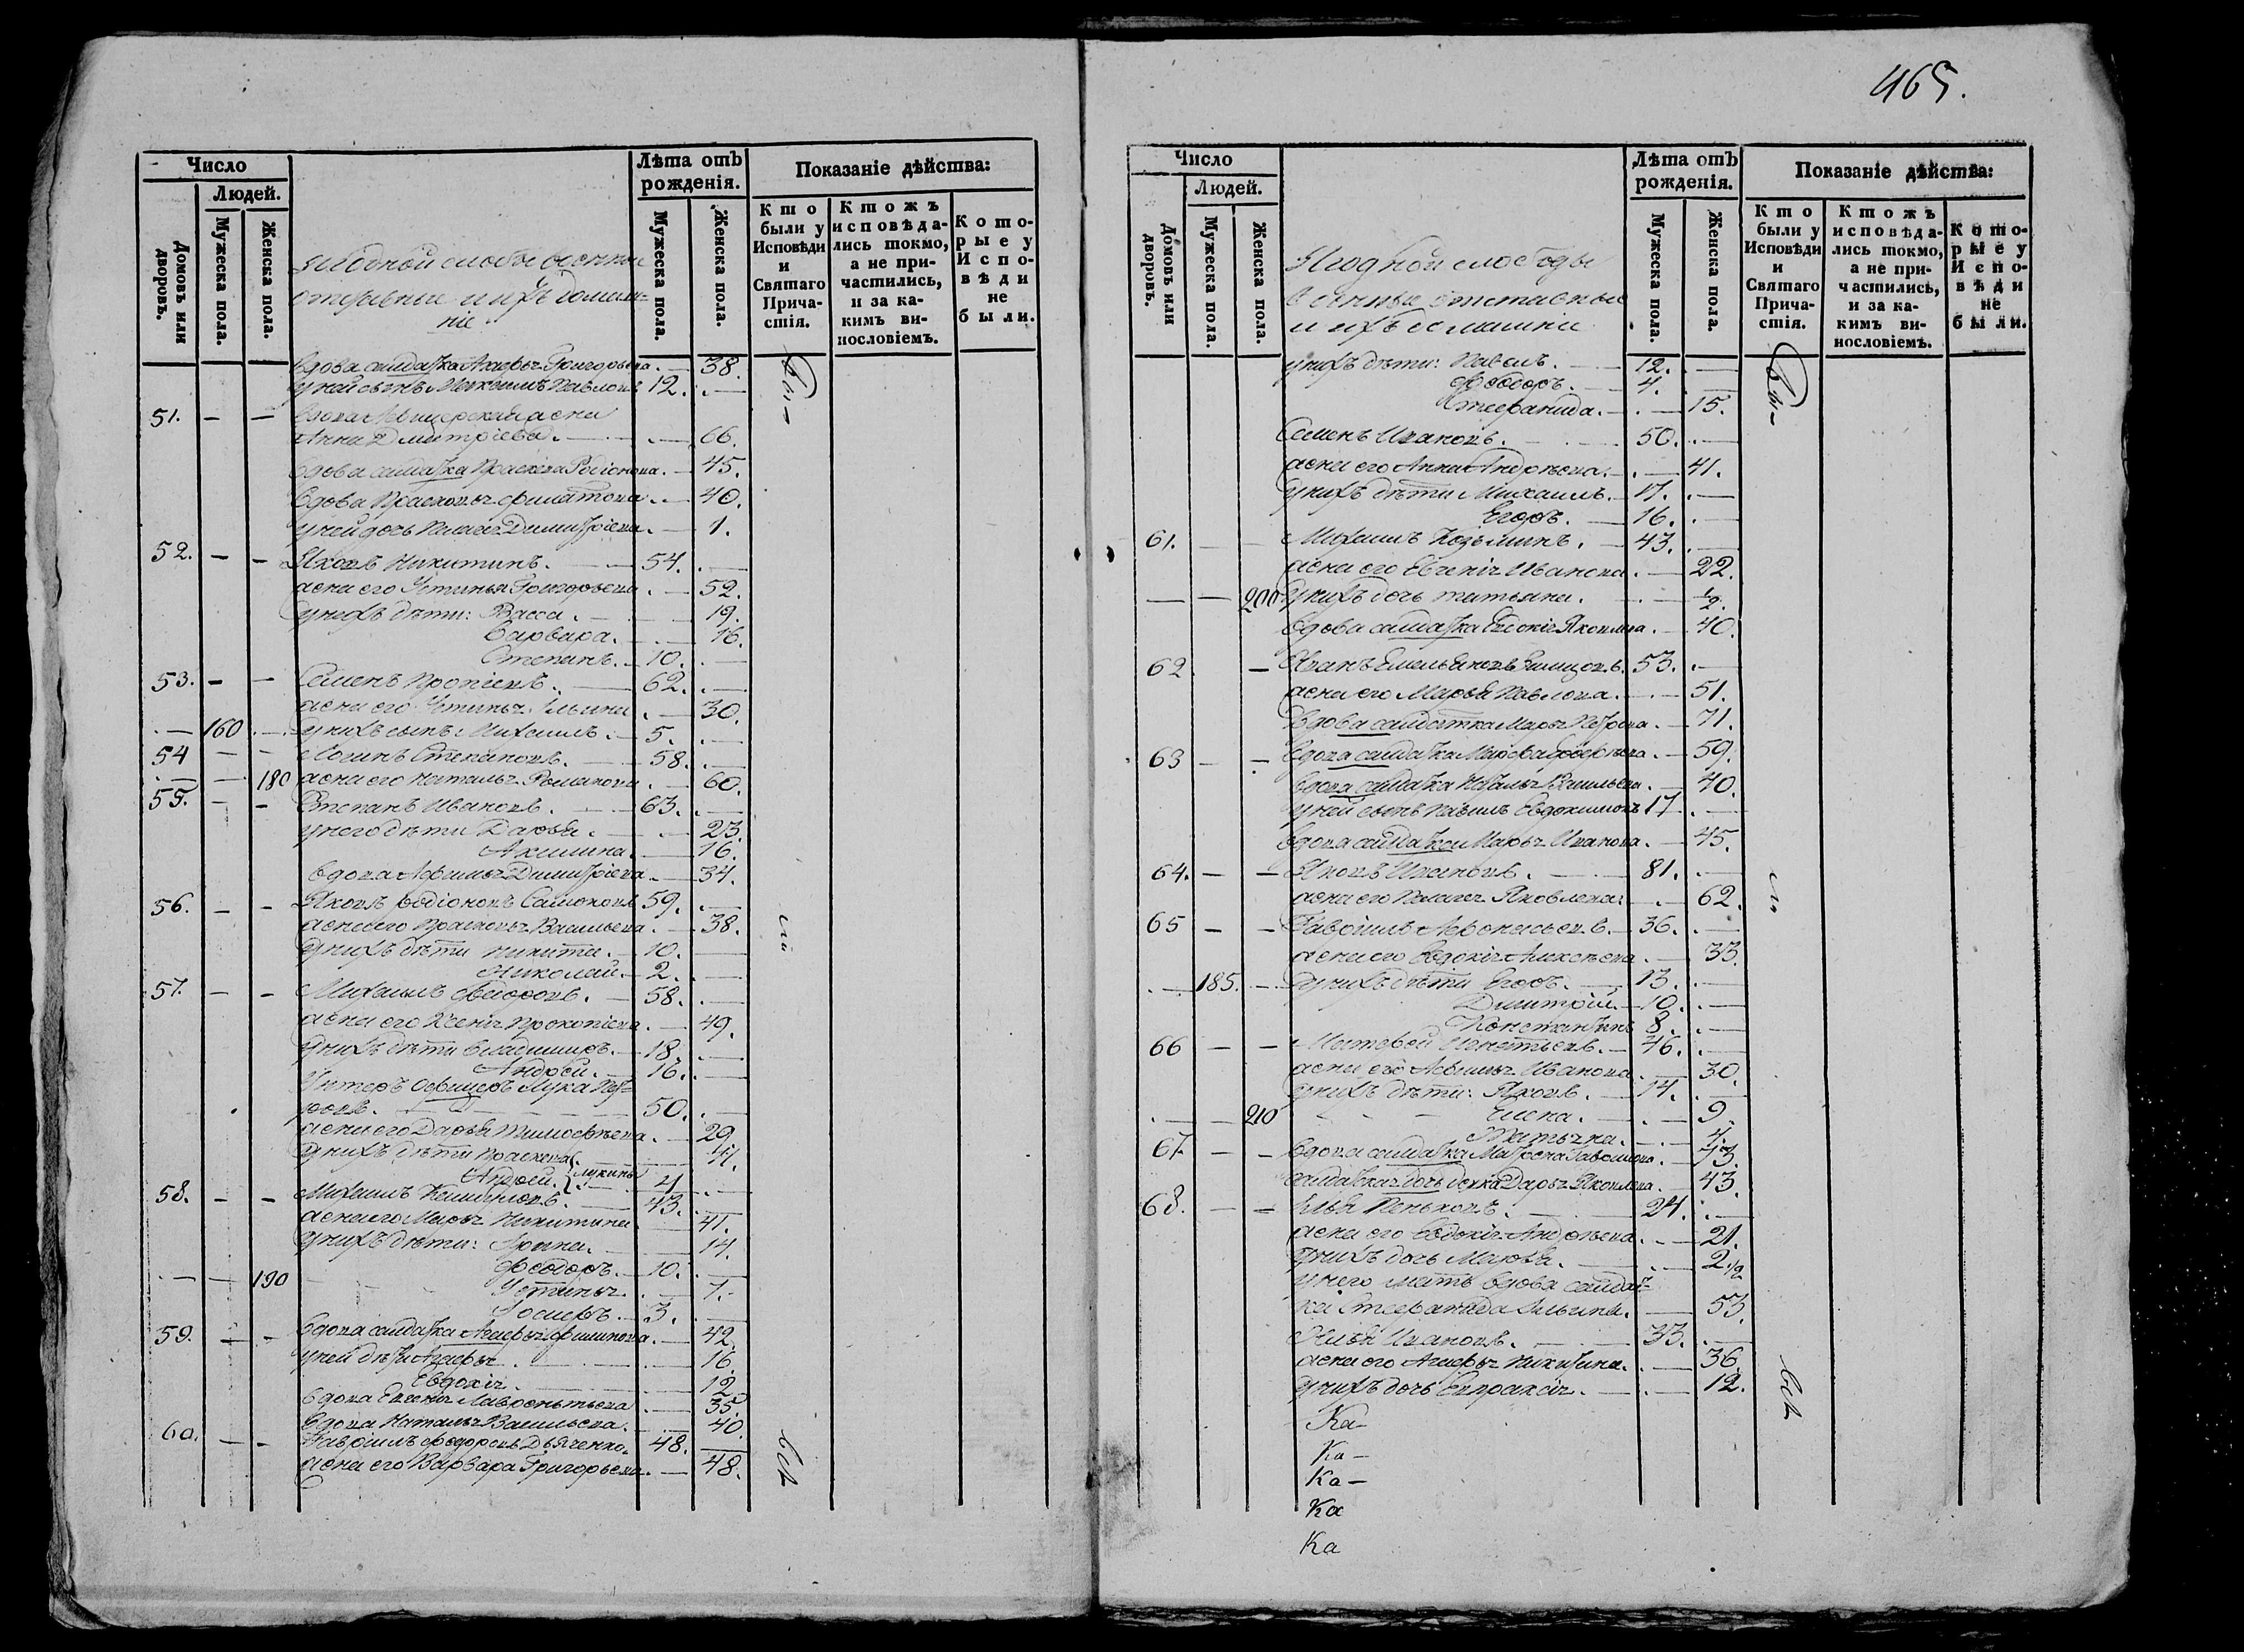 465.
Число
Людей.
Домовъ или дворовъ.
Мужеска пола.
Женска пола.
Лѣта отъ рожденія.
Мужеска пола.
Женска пола.
Показаніе дѣйства:
Кто были у Исповѣди и Святаго Причастія.
Ктожъ исповѣдались токмо, а не причастились, и за какимъ винословіемъ.
Которые у Исповѣди не были.
вдова салдатка Агафья Григорьева. — 38.
у ней сынъ Михаилъ Павловъ 12. —
51. — —
Анна Дмитріева. — 66.
вдова салдатка Праскева Родіонова. — 45.
вдова Прасковья Филатова — 40.
у ней дочь Пелагея Димитріева. — 1.
52. — — Яковъ Никитинъ. — 54. —
жена его Устинья Григорьева — 52.
у нихъ дѣти: Васса. — 19.
Варвара. — 16.
Степанъ. 10. —
53. — — Семенъ 62. —
жена его Устинья Ильина — 30.
— 160 — у нихъ сынъ: Михаилъ. — 5. —
54 — — Логинъ Степановъ. — 58. —
— — 180 жена его Наталья Романова — 60.
55. — — Степанъ Ивановъ. — 63. —
у него дѣти Дарья. — 23.
Акилина. — 16.
вдова Афимья Димитріева — 34.
56. — — Яковъ Родіоновъ 59. —
жена его Прасковья Васильева — 38.
у нихъ дѣти Никита. — 10. —
Николай. — 2. —
57. — — Михаилъ 58. —
жена его Ксенія Прокопіева — 49.
у нихъ дѣти Владимиръ. — 18. —
Андрей. — 16. —
Унтеръ Офицеръ Лука Пет-
ровъ. — 50. —
жена его Дарья Тимофѣева — 29.
у нихъ дѣти Праскева
Андрей. Лукины 4 —
58. — — Михаилъ 43. —
жена его Марья Никитина — 41.
у нихъ дѣти: Арина. — 14.
Феодоръ. — 10. —
— — 190 Устинья. — 7.
Іосифъ. — 3. —
59. — — вдова салдатка Агафья Филипова — 42.
у ней дѣти Агафья — 16.
Евдокія — 12.
вдова Евгенія Лаврентьева — 35.
вдова Наталья Васильева. — 40.
60. — — Гавріилъ Федоровъ Дьяченко. 48. —
жена его Варвара Григорьева. — 48.
Бы-
ли
всѣ
Число
Людей.
Домовъ или дворовъ.
Мужеска пола.
Женска пола.
Ягодной слободы
военные отставные
и ихъ домашніи
Лѣта отъ рожденія.
Мужеска пола.
Женска пола.
Показаніе дѣйства:
Кто были у Исповѣди и Святаго Причастія.
Ктожъ исповѣдались токмо, а не причастились, и за какимъ винословіемъ.
Которые у Исповѣди не были.
у нихъ дѣти: Павелъ. — 12. —
Феодоръ. — 4. —
Стефанида. — 15.
Семенъ Ивановъ. — 50. —
жена его Анна Андрѣева. — 41.
у нихъ дѣти Михаилъ. — 17. —
Егоръ. — 16. —
61. — — Михаилъ Козьминъ. — 43. —
жена его Евгенія Иванова. — 22.
— — 200 у нихъ дочь татьяна. — 1/2.
вдова салдатка Евдокія Яковлева. — 40.
62 — Иванъ Емельяновъ 53. —
жена его Марья Павлова. — 51.
вдова салдатка Марья Петрова. — 71.
63 — — вдова салдатка Марфа — 59.
вдова салдатка Наталья Васильева. — 40.
у ней сынъ Павелъ Евдокимовъ 17 —
вдова салдатка Марья Иванова. — 45.
64. — — Яковъ 81. —
жена его Пелагея Яковлева: — 62.
65 — — Гавріилъ Афонасьевъ. — 36. —
жена его Евдокія Алексѣева. — 33.
— 185. — у нихъ дѣти Егоръ. — 13. —
Димитрій. — 10. —
Константинъ 8. —
66 — — Матвей Игнатьевъ. — 46. —
жена его Афимья Иванова. — 30.
у нихъ дѣти: Яковъ. — 14. —
— — 210 Елена. — 9.
Татьяна. — 4.
67 — — вдова салдатка Матрена Гаврилова. — 73.
салдатская дочь девка Дарья Яковлева. — 43.
68. — — Илья Пеньковъ. — 24. —
жена его Евдокія Андрѣева. — 21.
у нихъ дочь Марья. — 2 1/2
у него мать вдова салдат-
ка Стефанида Ильина. — 53.
Илья Ивановъ. — 33. —
жена его Агафья Никитина. — 36.
у нихъ дочь Евпраксія. — 12.
Ка-
Ка-
Ка-
Ка
Ка
Бы-
ли
всѣ